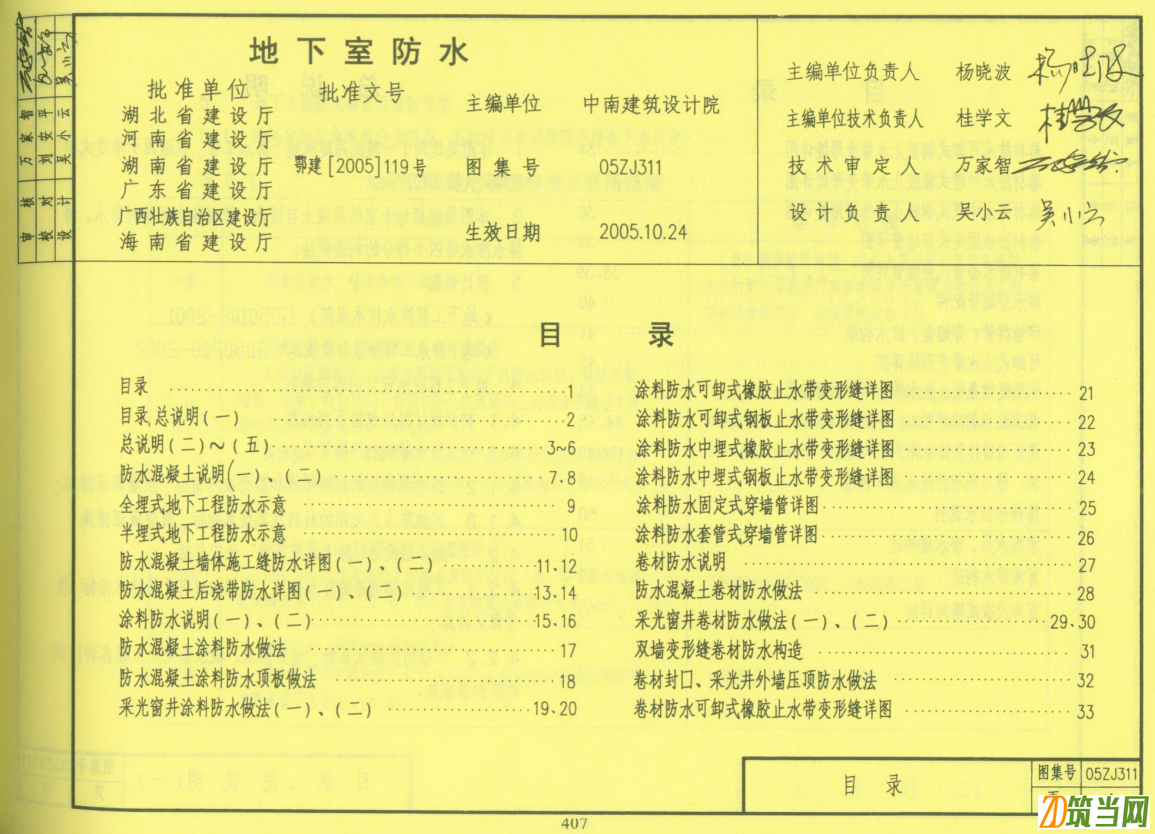 地下室防水
批准单位
湖北省建设厅
河南省建设厅
湖南省建设厅
广东省建设厅
广西壮族自治区建设厅
海南省建设厅
批准文号
鄂建[2005]119号
主编单位 中南建筑设计院
图集号 05ZJ311
生效日期 2005.10.24
主编单位负责人 杨晓波
主编单位技术负责人 桂学文
技术审定人 万家智
设计负责人 吴小云
审核 万家智
校对 刘安平
设计 吴小云
目 录
目录 ……… 1
目录,总说明(一) ……… 2
总说明(二)～(五) ……… 3~6
防水混凝土说明(一)、(二) ……… 7、8
全埋式地下工程防水示意 ……… 9
半埋式地下工程防水示意 ……… 10
防水混凝土墙体施工缝防水详图(一)、(二) ……… 11、12
防水混凝土后浇带防水详图(一)、(二) ……… 13、14
涂料防水说明(一)、(二) ……… 15、16
防水混凝土涂料防水做法 ……… 17
防水混凝土涂料防水顶板做法 ……… 18
采光窗井涂料防水做法(一)、(二) ……… 19、20
涂料防水可卸式橡胶止水带变形缝详图 ……… 21
涂料防水可卸式钢板止水带变形缝详图 ……… 22
涂料防水中埋式橡胶止水带变形缝详图 ……… 23
涂料防水中埋式钢板止水带变形缝详图 ……… 24
涂料防水固定式穿墙管详图 ……… 25
涂料防水套管式穿墙管详图 ……… 26
卷材防水说明 ……… 27
防水混凝土卷材防水做法 ……… 28
采光窗井卷材防水做法(一)、(二) ……… 29、30
双墙变形缝卷材防水构造 ……… 31
卷材封口、采光井外墙压顶防水做法 ……… 32
卷材防水可卸式橡胶止水带变形缝详图 ……… 33
目 录
图集号 05ZJ311
407
筑当网